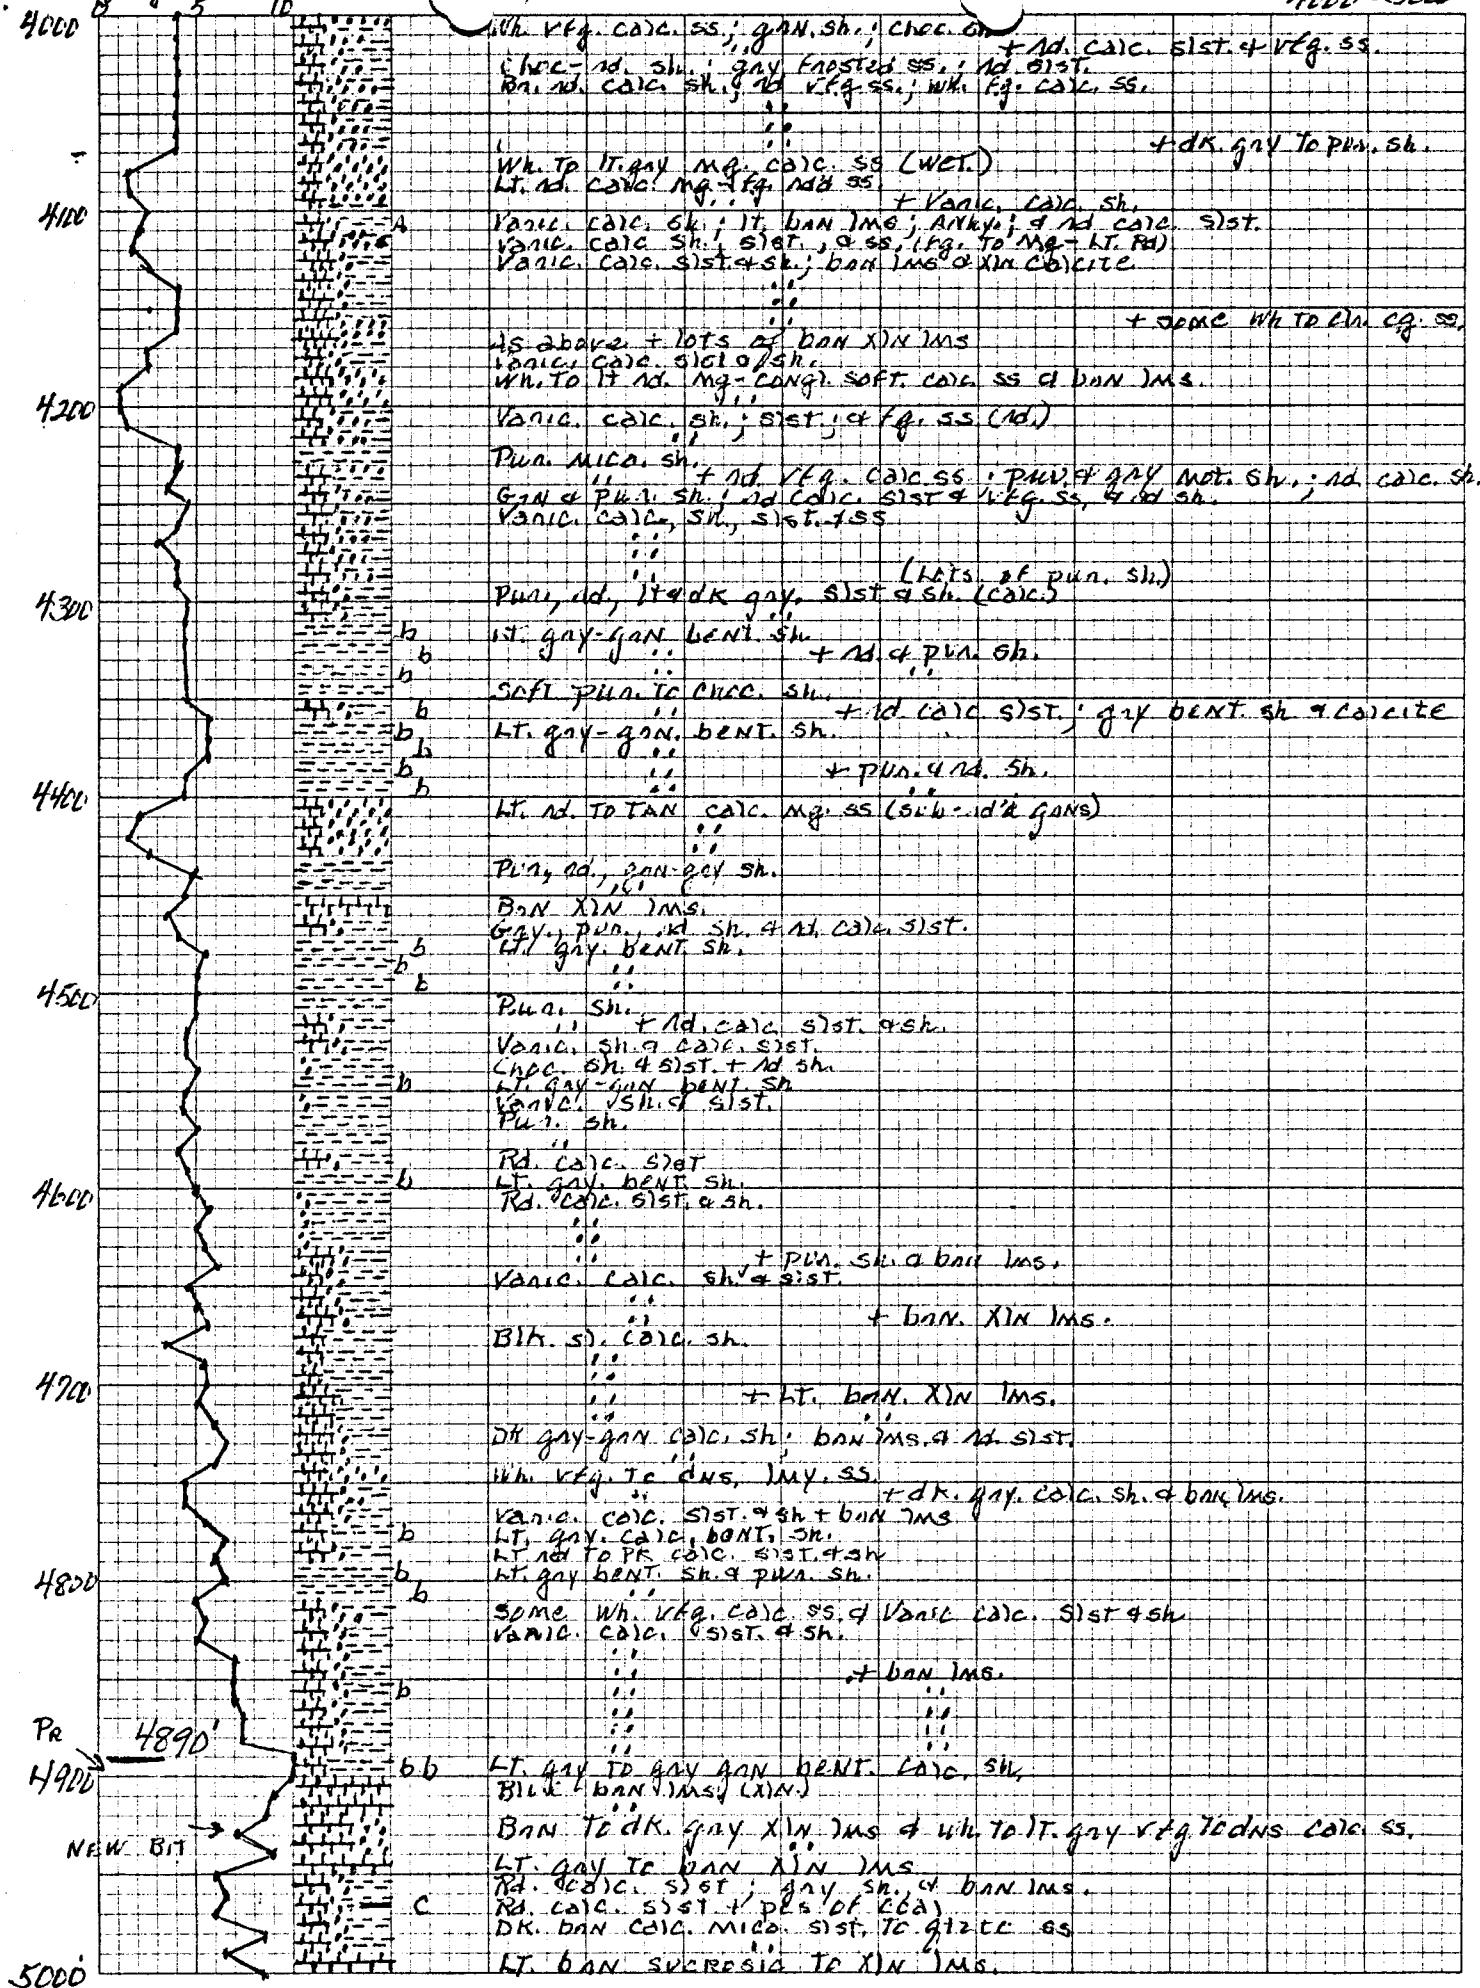 0 5 10 4000-5000
4000 Wh. vfg. calc. ss.; grn. sh.; choc. sh
+ rd. calc. slst. & vfg. ss.
Choc-rd. sh.; gry frosted ss.; rd slst.
Bn. rd. calc. sh.; rd vfg ss.; wh. fg. calc. ss.
+ dk. gry To pur. sh.
Wh. To lT. gry mg. calc. ss (WET.)
LT. rd. calc. mg-fg. rdd ss.
+ Varic. calc. sh.
4100 A Varic. calc. sh.; lt. brn lms; Anhy.; & rd calc. slst.
Varic. calc sh., slst., & ss, (fg. To Mg-LT. Rd)
Varic. calc. slst & sh.; brn lms & Xln Calcite
+ some Wh To clr. cg. ss.
As above + lots of brn Xln lms
Varic. calc. slst & sh.
Wh. To lt rd. mg-congl. soft. calc ss & brn lms.
4200 Varic. calc. sh.; slst.; & fg. ss (rd.)
Pur. mica. sh.
+ rd vfg. calc ss; pur. & gry mot. sh.; rd calc. sh.
Grn & pur. sh.; rd calc. slst & vfg. ss, & rd sh.
Varic. calc., sh., slst. & ss
(Lots of pur. sh.)
4300 Pur., rd, lt & dk gry. slst & sh. (calc.)
b LT. gry-grn bent. sh.
b + rd. & pur. sh.
b
Soft pur. To choc. sh.
b + rd calc slst.; gry bent. sh & Calcite
b LT. gry-grn. bent. sh.
b
b + pur. & rd. sh.
b
4400 LT. rd. To TAN calc. mg. ss (sub-rd'd grns)
Pur., rd., grn-gry sh.
Brn Xln lms.
Gry., pur., rd sh. & rd calc. slst.
b LT. gry. bent. sh.
b
b
4500 Pur. sh.
+ rd. calc slst. & sh.
Varic. sh. & calc. slst.
Choc. sh. & slst. + rd sh.
b LT. gry-grn bent. sh
Varic. sh. & slst.
Pur. sh.
Rd. calc. slst
b LT. gry. bent. sh.
4600 Rd. calc. slst. & sh.
+ pur. sh. & brn lms.
Varic. calc. sh. & slst.
+ brn. Xln lms.
Blk. sl. calc. sh.
4700 + LT. brn. Xln lms.
Dk gry-grn calc. sh; brn lms. & rd. slst.
Wh. vfg. To dns, lmy. ss.
+ dk. gry. calc. sh. & brn lms.
Varic. calc. slst. & sh + brn lms
b LT. gry. calc. bent. sh.
LT rd To Pk calc. slst. & sh
4800 b LT. gry bent. sh. & pur. sh.
b
Some Wh. vfg. calc ss. & Varic calc. slst & sh
Varic. calc. slst. & sh.
+ brn lms.
b
PR 4890'
4900 bb LT. gry To gry grn bent. calc. sh.
brn lms. (Xln)
NEW BIT Brn To dk. gry Xln lms & wh. To lT. gry vfg To dns calc ss.
LT. gry To brn Xln lms
Rd. calc. slst; gry sh. & brn lms.
C Rd. calc. slst + pcs of coal
Dk. brn calc. mica. slst. To qtztc ss
5000' LT. brn sucrosic To Xln lms.